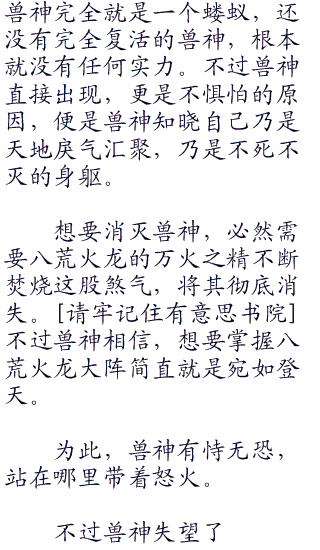 兽神完全就是一个蝼蚁，还
没有完全复活的兽神，根本
就没有任何实力。不过兽神
直接出现，更是不惧怕的原
因，便是兽神知晓自己乃是
天地戾气汇聚，乃是不死不
灭的身躯。
想要消灭兽神，必然需
要八荒火龙的万火之精不断
焚烧这股煞气，将其彻底消
失。[请牢记住有意思书院]
不过兽神相信，想要掌握八
荒火龙大阵简直就是宛如登
天。
为此，兽神有恃无恐，
站在哪里带着怒火。
不过兽神失望了